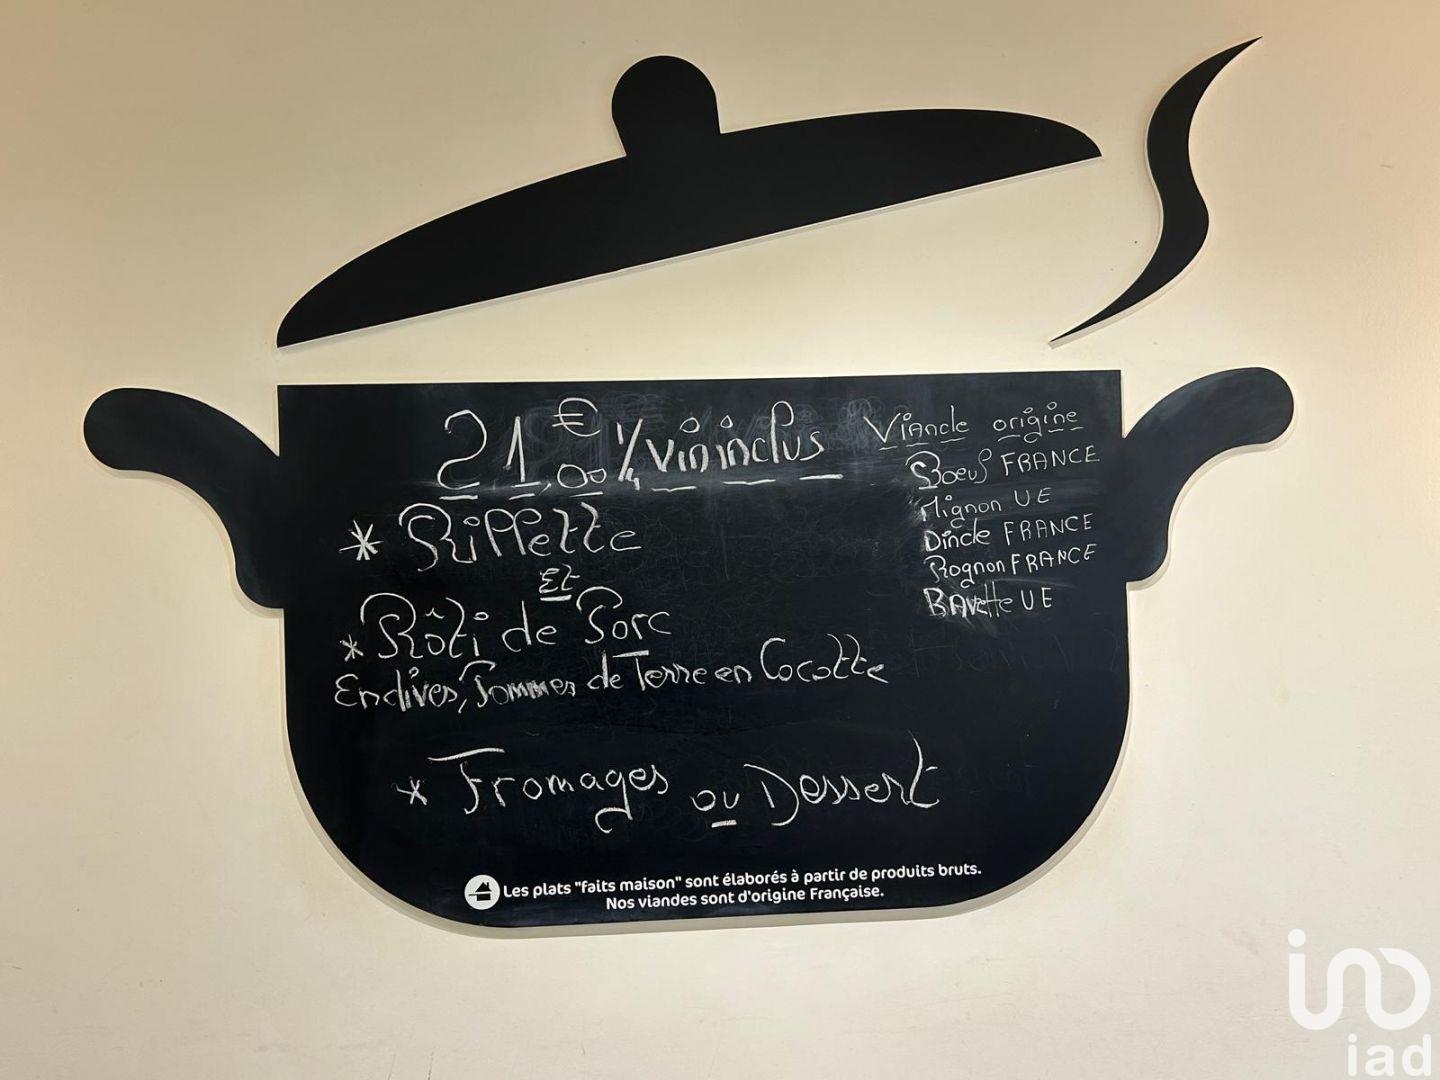 21,00€ 1/4 vin inclus
* Rippette
Et
* Rôti de Porc
Endives, Pommes de Terre en Cocotte
* Fromages ou Dessert
Viande origine
Boeuf FRANCE
Mignon UE
Dinde FRANCE
Rognon FRANCE
BAvette UE
Les plats "faits maison" sont élaborés à partir de produits bruts.
Nos viandes sont d'origine Française.
iad